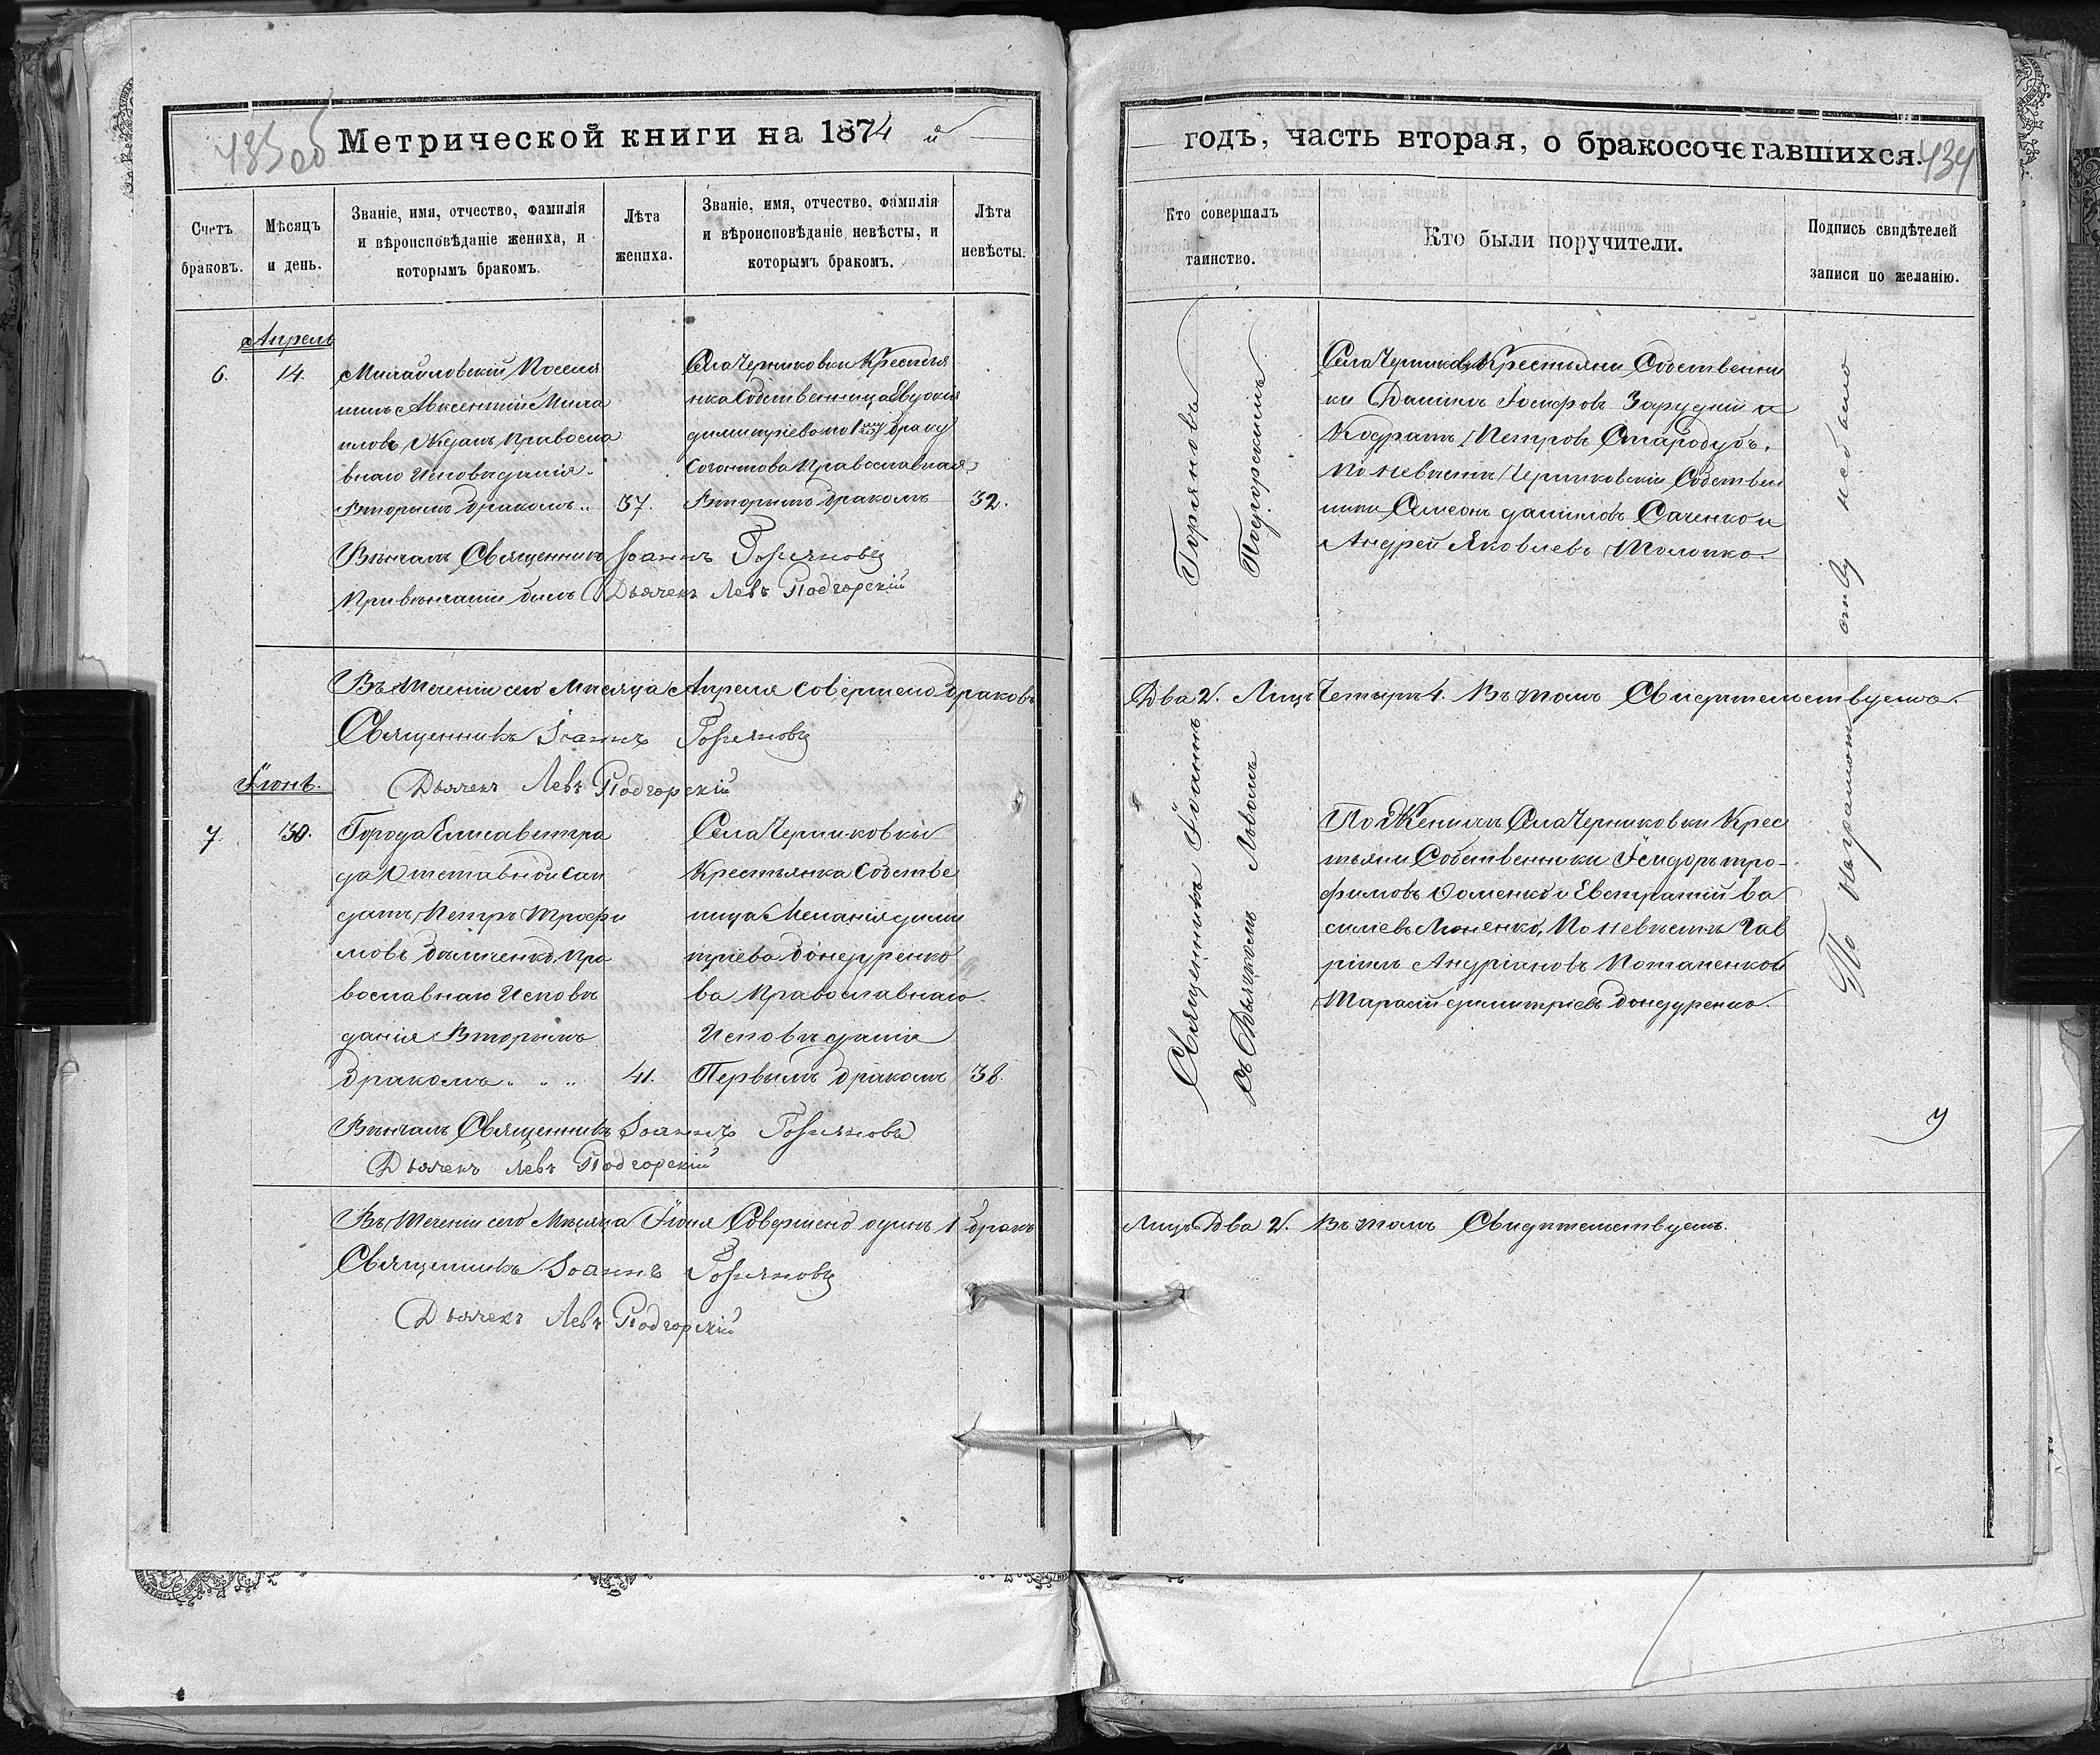 433 об
Метрической книги на 1874 й
Счетъ браковъ.
Мѣсяцъ и день.
Званіе, имя, отчество, фамилія
и вѣроисповѣданіе жениха, и
которымъ бракомъ.
Лѣта жениха.
Званіе, имя, отчество, фамилія
и вѣроисповѣданіе невѣсты, и
которымъ бракомъ.
Лѣта невѣсты.
Апрель
6.
14.
Михайловскій Поселя
нинъ Авксентій Миха
иловъ Жданъ Правосла
внаго Исповѣданія
Вторымъ бракомъ
37.
Села Черниковки Крестья
нка Собственница Евдокія
Димитріева по 1му браку
Православная
Вторымъ бракомъ
32.
Вѣнчалъ Священникъ Іоаннъ Горяновъ
При вѣнчаніи былъ Дьячекъ Левъ Подгорскій
Въ теченіи сего Мѣсяца Апреля совершено браковъ
Священникъ Іоаннъ Горяновъ
Дьячекъ Левъ Подгорскій
Іюнь.
7.
30.
Города Елисаветгра
да Отставной Сол
датъ Петръ Трофи
мовъ Пра
вославнаго Исповѣ
данія Вторымъ
бракомъ
41.
Села Черниковки
Крестьянка Собстве
ница Меланія Дими
тріева Бондуренко
ва Православнаго
Исповѣданія
Первымъ бракомъ
38.
Вѣнчалъ Священникъ Іоаннъ Горяновъ
Дьячекъ Левъ Подгорскій
Въ теченіи сего Мѣсяца Іюня Совершено одинъ 1 бракъ
Священникъ Іоаннъ Горяновъ
Дьячекъ Левъ Подгорскій
годъ, часть вторая, о бракосочетавшихся.
434
Кто совершалъ таинство.
Кто были поручители.
Подпись свидѣтелей
записи по желанію.
Священникъ Іоаннъ Горяновъ
съ Дьячкомъ Львомъ Подгорскимъ
Села Черниковки Крестьяни Собственни
ки Даніилъ Іосифовъ Зарудній и
Кодратъ Петровъ Стародубъ.
По невѣсте Черниковскіи Собствен
ники Симеонъ Даниловъ Саченко и
Андрей Яковлевъ Толочко.
По неграмотству небыло
Два 2. Лицъ Четыре 4. Въ томъ Свидѣтельствуемъ.
По Женихе Села Черниковки Крес
тьяни Собственники Ісидоръ Тро-
фимовъ Фоменко и Евстратій Ва
силіевъ По невѣсте Гав
ріилъ Андріановъ Потапенко и
Тарасій Димитріевъ Бондуренко.
Лицъ Два 2. Въ томъ Свидѣтельствуемъ.